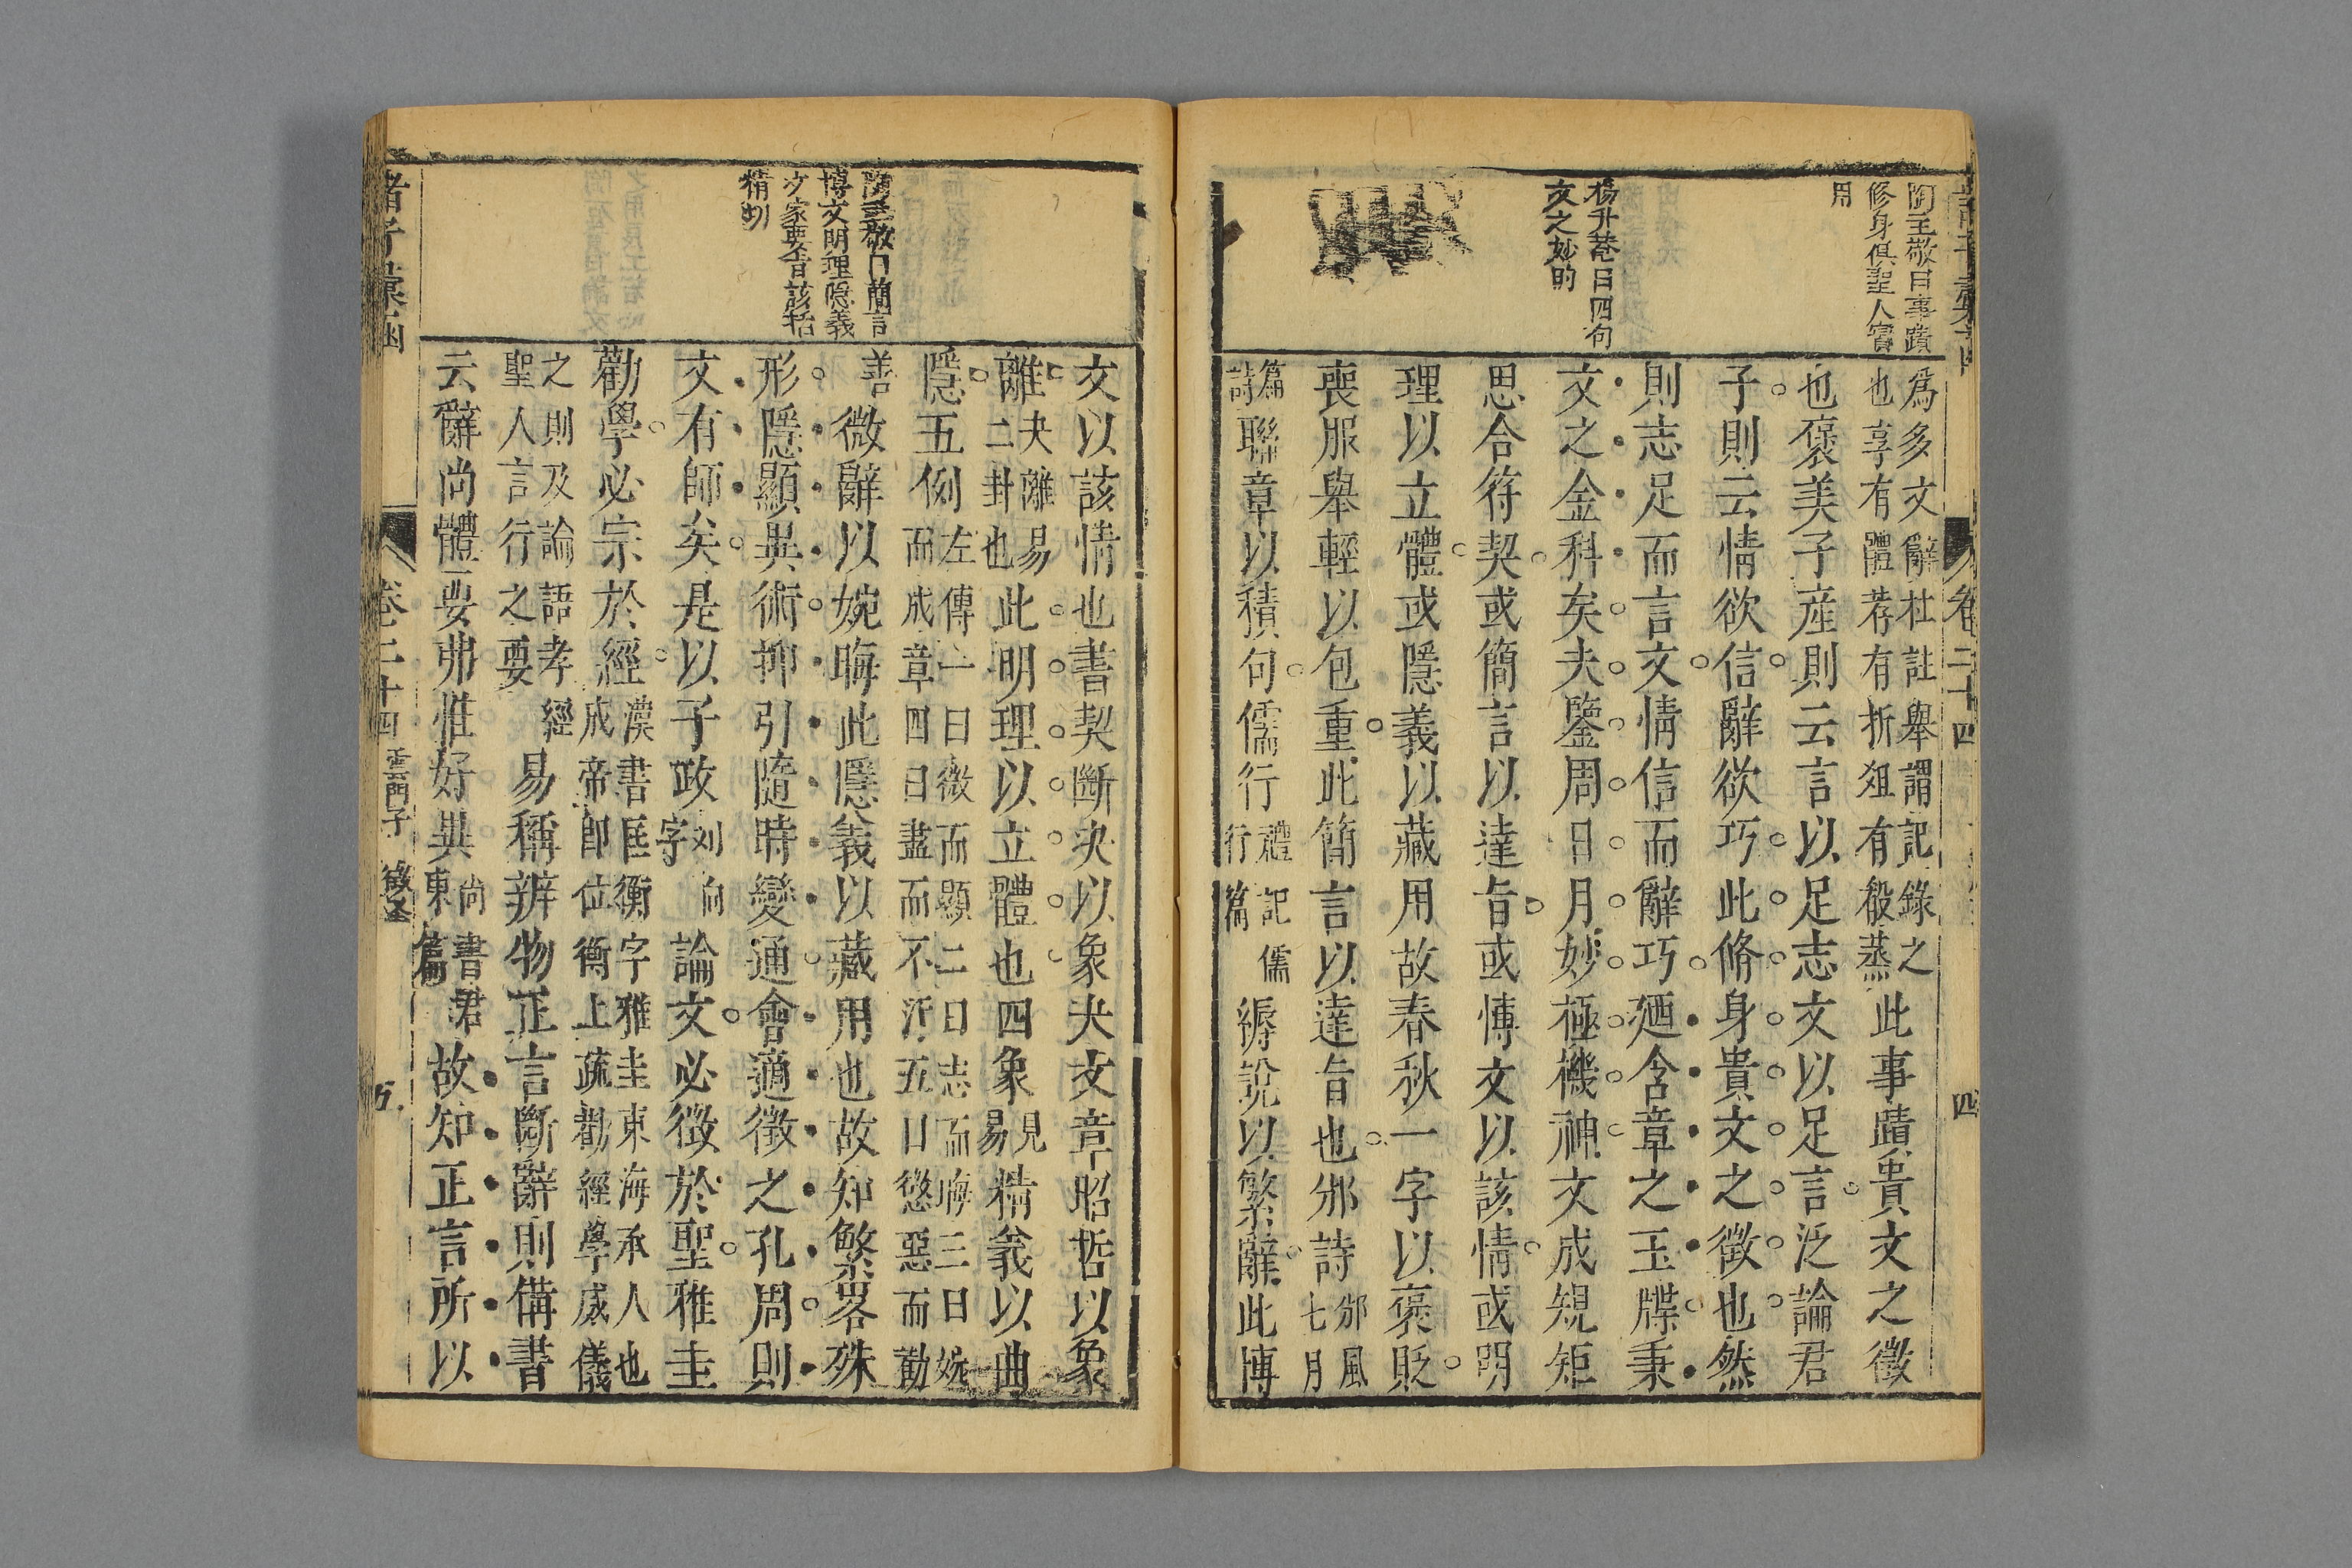 陶主敬曰事蹟
修身俱聖人實
用
楊升菴曰四句
文之妙的
為多文辭杜註舉謂記錄之
也享有體荐有折俎有殽蒸此事蹟貴文之徵
也褒美子產則云言以足志文以足言泛論君
子則云情欲信辭欲巧此脩身貴文之徵也然
則志足而言文情信而辭巧廼含章之玉牒秉
文之金科矣夫鑒周日月妙極機神文成規矩
思合符契或簡言以達旨或博文以該情或明
理以立體或隱義以藏用故春秋一字以褒貶
喪服舉輕以包重此簡言以達旨也邠詩邠風七月
篇詩聯章以積句儒行禮記儒行篇縟說以繁辭此博
卷二十四
四
陶主敬曰簡言
博文明理隱義
文家要旨該括
精切
文以該情也書契斷決以象夬文章昭哲以象
離夬離易二卦也此明理以立體也四象見易精義以曲
隱五例左傳一曰微而顯二曰志而晦三曰婉而成章四曰盡而不汙五曰懲惡而勸
善微辭以婉晦此隱義以藏用也故知繁畧殊
形隱顯異術抑引隨時變通會適徵之孔周則
文有師矣是以子政刘向字論文必徵於聖雅圭
勸學必宗於經漢書匡衡字雅圭東海承人也成帝即位衡上疏勸經學威儀
之則及論語孝經聖人言行之要易稱辨物正言斷辭則備書
云辭尚體要弗惟好異尚書君東篇故知正言所以
諸子彙函
卷二十四
雲門子
徵聖
五